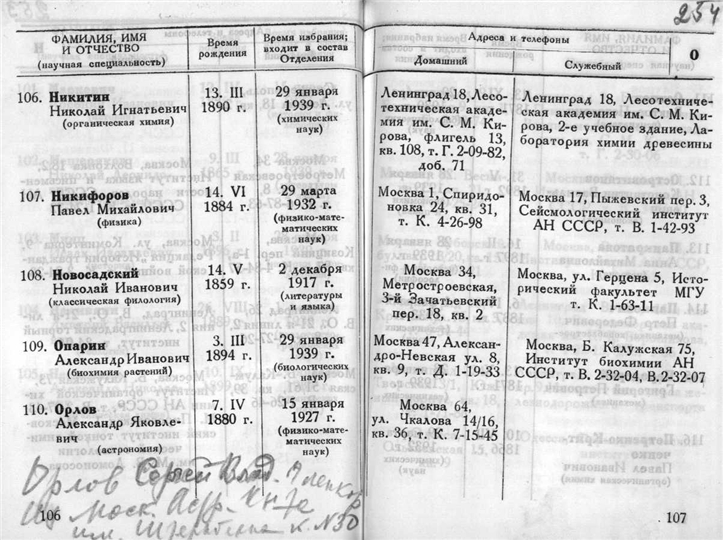 254
ФАМИЛИЯ, ИМЯ
И ОТЧЕСТВО
(научная специальность)
Время
рождения
Время избрания;
входит в состав
Отделения
106. Никитин
Николай Игнатьевич
(органическая химия)
13. III
1890 г.
29 января
1939 г.
(химических
наук)
107. Никифоров
Павел Михайлович
(физика)
14. VI
1884 г.
29 марта
1932 г.
(физико-мате-
матических
наук)
108. Новосадский
Николай Иванович
(классическая филология)
14. V
1859 г.
2 декабря
1917 г.
(литературы
и языка)
109. Опарин
Александр Иванович
(биохимия растений)
3. III
1894 г.
29 января
1939 г.
(биологических
наук)
110. Орлов
Александр Яковле-
вич
(астрономия)
7. IV
1880 г.
15 января
1927 г.
(физико-мате-
матических
наук)
Орлов Сергей Влад. Членкор
Моск. Астр.
им. Штернберга к. № 30
106
Адреса и телефоны
Домашний
Служебный
О
Ленинград 18, Лесо-
техническая акаде-
мия им. С. М. Ки-
рова, флигель 13,
кв. 108, т. Г. 2-09-82,
доб. 71
Ленинград 18, Лесотехниче-
ская академия им. С. М. Ки-
рова, 2-е учебное здание, Ла-
боратория химии древесины
Москва 1, Спиридо-
новка 24, кв. 31,
т. К. 4-26-98
Москва 17, Пыжевский пер. 3,
Сейсмологический институт
АН СССР, т. В. 1-42-93
Москва 34,
Метростроевская,
3-й Зачатьевский
пер. 18, кв. 2
Москва, ул. Герцена 5, Исто-
рический факультет МГУ
т. К. 1-63-11
Москва 47, Алексан-
дро-Невская ул. 8,
кв. 9, т. Д. 1-19-33
Москва, Б. Калужская 75,
Институт биохимии АН
СССР, т. В. 2-32-04, В. 2-32-07
Москва 64,
ул. Чкалова 14/16,
кв. 36, т. К. 7-15-45
107